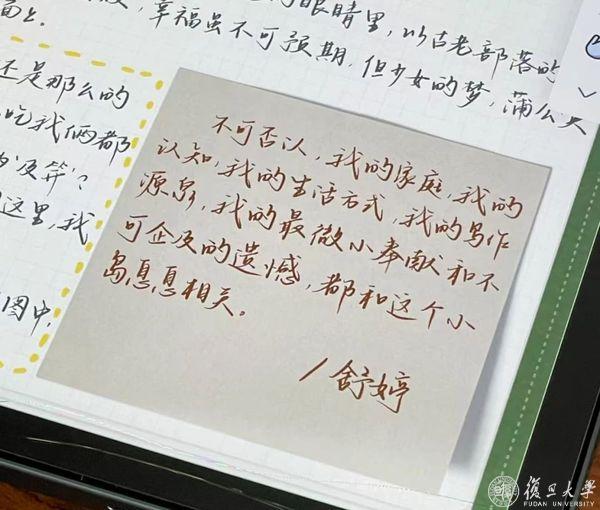 眼睛里，以古老部落的
面上。
幸福虽不可预期，但少女的梦，蒲公英
还是那么的
吃我俩都
及笄？
这里，我
图中，
不可否认，我的家庭，我的
认知，我的生活方式，我的写作
源泉，我的最微小奉献和不
可企及的遗憾，都和这个小
岛息息相关。
/舒婷
復旦大學
FUDAN UNIVERSITY